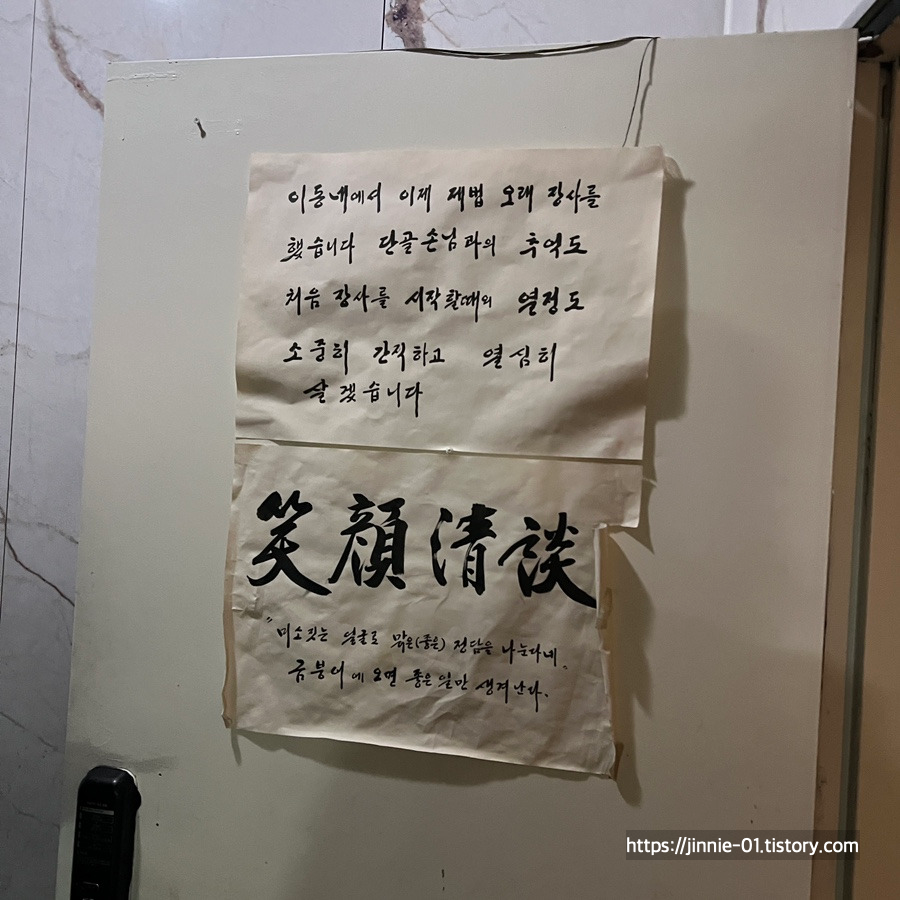 이동네에서 이제 제법 오래 장사를
했습니다 단골손님과의 추억도
처음 장사를 시작할때의 열정도
소중히 간직하고 열심히
살겠습니다
笑顔清談
"미소짓는 얼굴로 맑은(좋은) 정담을 나눈다네"
금붕어에 오면 좋은 일만 생겨난다.
https://jinnie-01.tistory.com